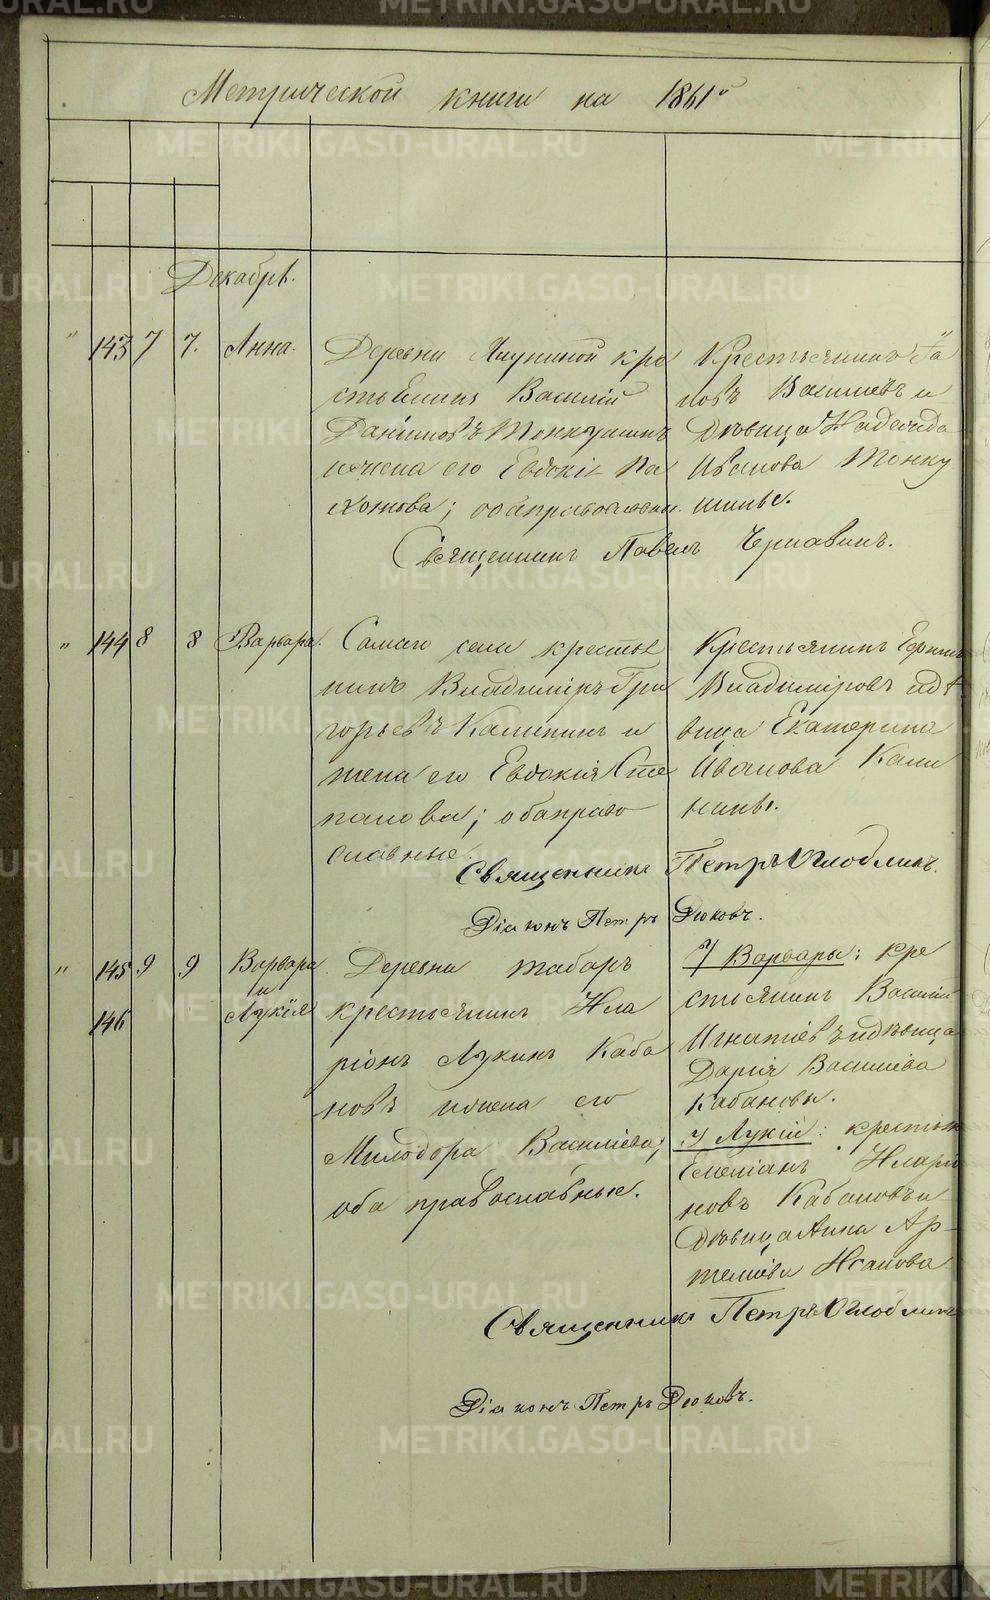 Метрической книги на 1861й
Декабрь.
" 143 7 7. Анна.
Деревни кре
стьянинъ Василій
Даниловъ Тонкушинъ
и жена его Евдокія Па
хомова; оба православн.
Крестьянинъ Га
Василіевъ и
Дѣвица Надежда
Иванова Тонку
шины.
Священникъ Павелъ Чернавинъ.
" 144 8 8 Варвара.
Самаго села крестья
нинъ Владиміръ Гри
горьевъ Калининъ и
жена его Евдокія Сте
панова; оба право
славные.
Крестьянинъ
Владиміровъ и дѣ
вица Екатерина
Иванова Кали
нины.
Священникъ Петръ Оглоблинъ.
Діаконъ Петръ Дюковъ.
" 145 9 9 Варвара
и
146 Лукія
Деревни Табаръ
крестьянинъ Ила
ріонъ Лукинъ Каба
новъ и жена его
Милодора Василіева;
оба православные.
У Варвары: кре
стьянинъ Василій
Игнатіевъ и дѣвица
Дарія Василіева
Кабановы.
У Лукіи: крестьян
Симеіанъ Иларіо
новъ Кабановъ и
Дѣвица Анна Ар
темиева Исакова
Священникъ Петръ Оглоблинъ
Діаконъ Петръ Дюковъ.
METRIKI.GASO-URAL.RU